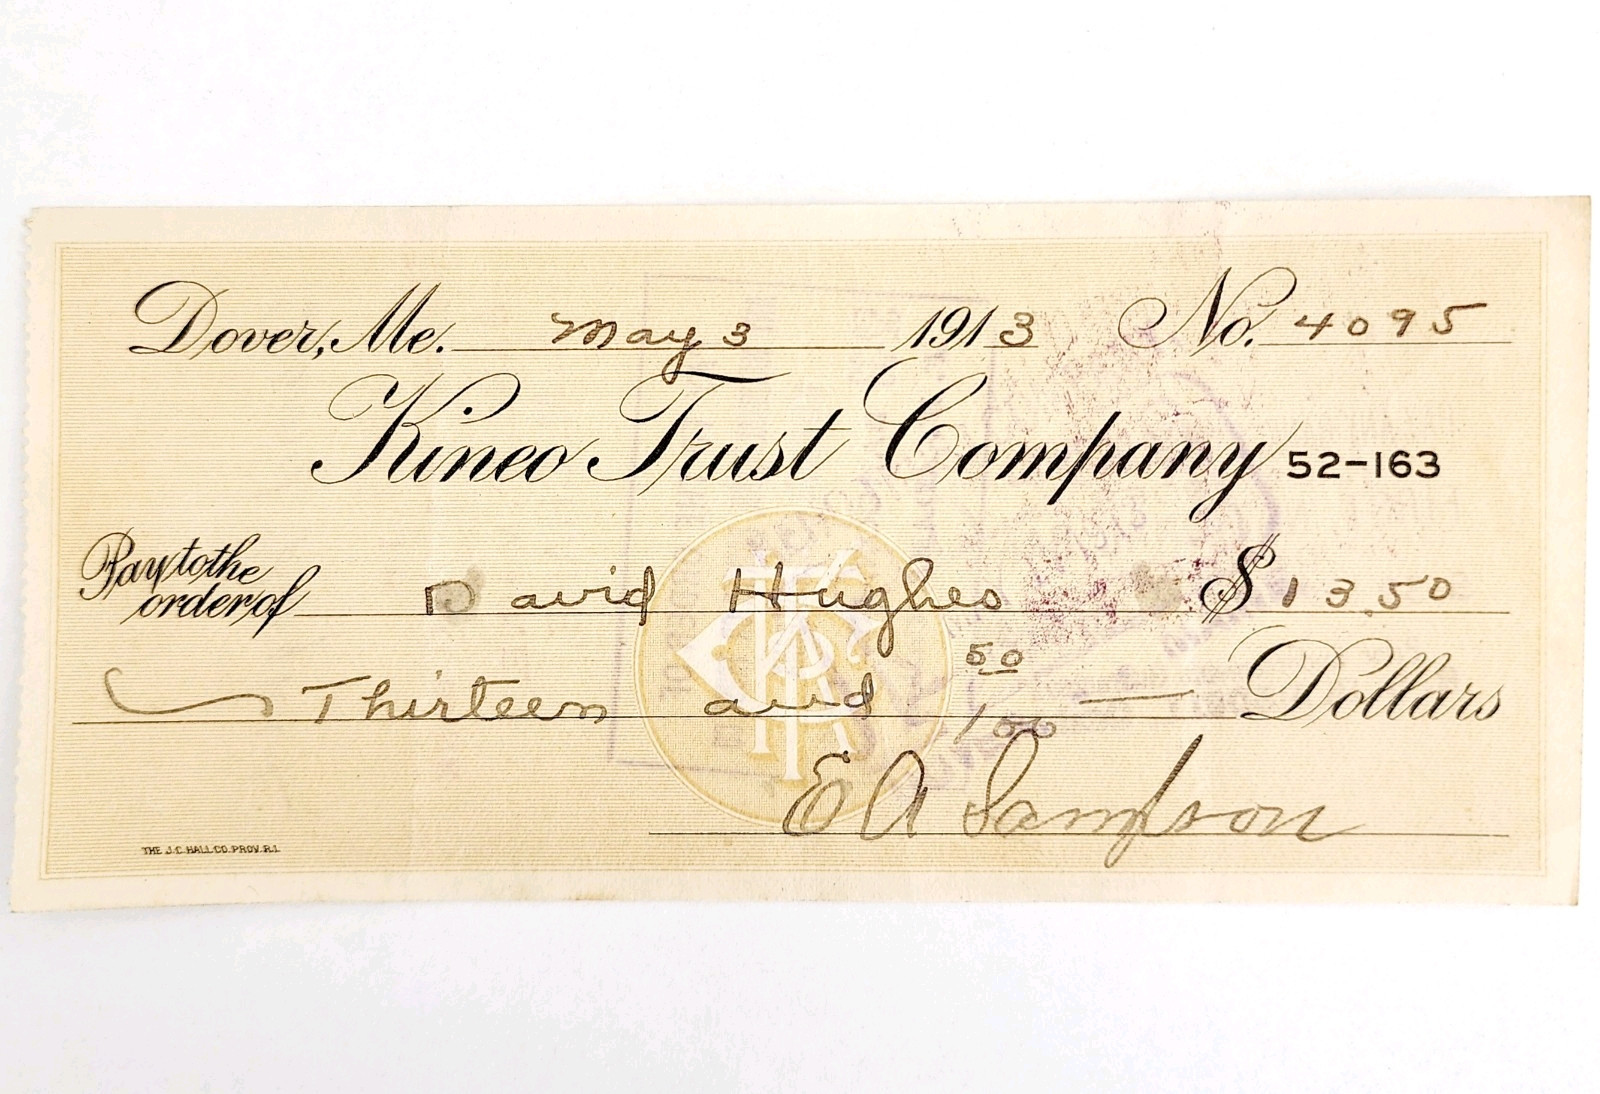 Dover, Me. May 3 1913 No. 4095
Kineo Trust Company 52-163
Pay to the order of David Hughes $13.50
Thirteen and 50/100 — Dollars
E A Sampson
THE J.C. HALL CO. PROV. R.I.
KTC